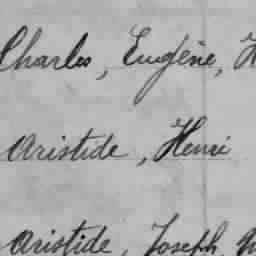 Charles, Eugène, H
Aristide, Henri
Aristide, Joseph